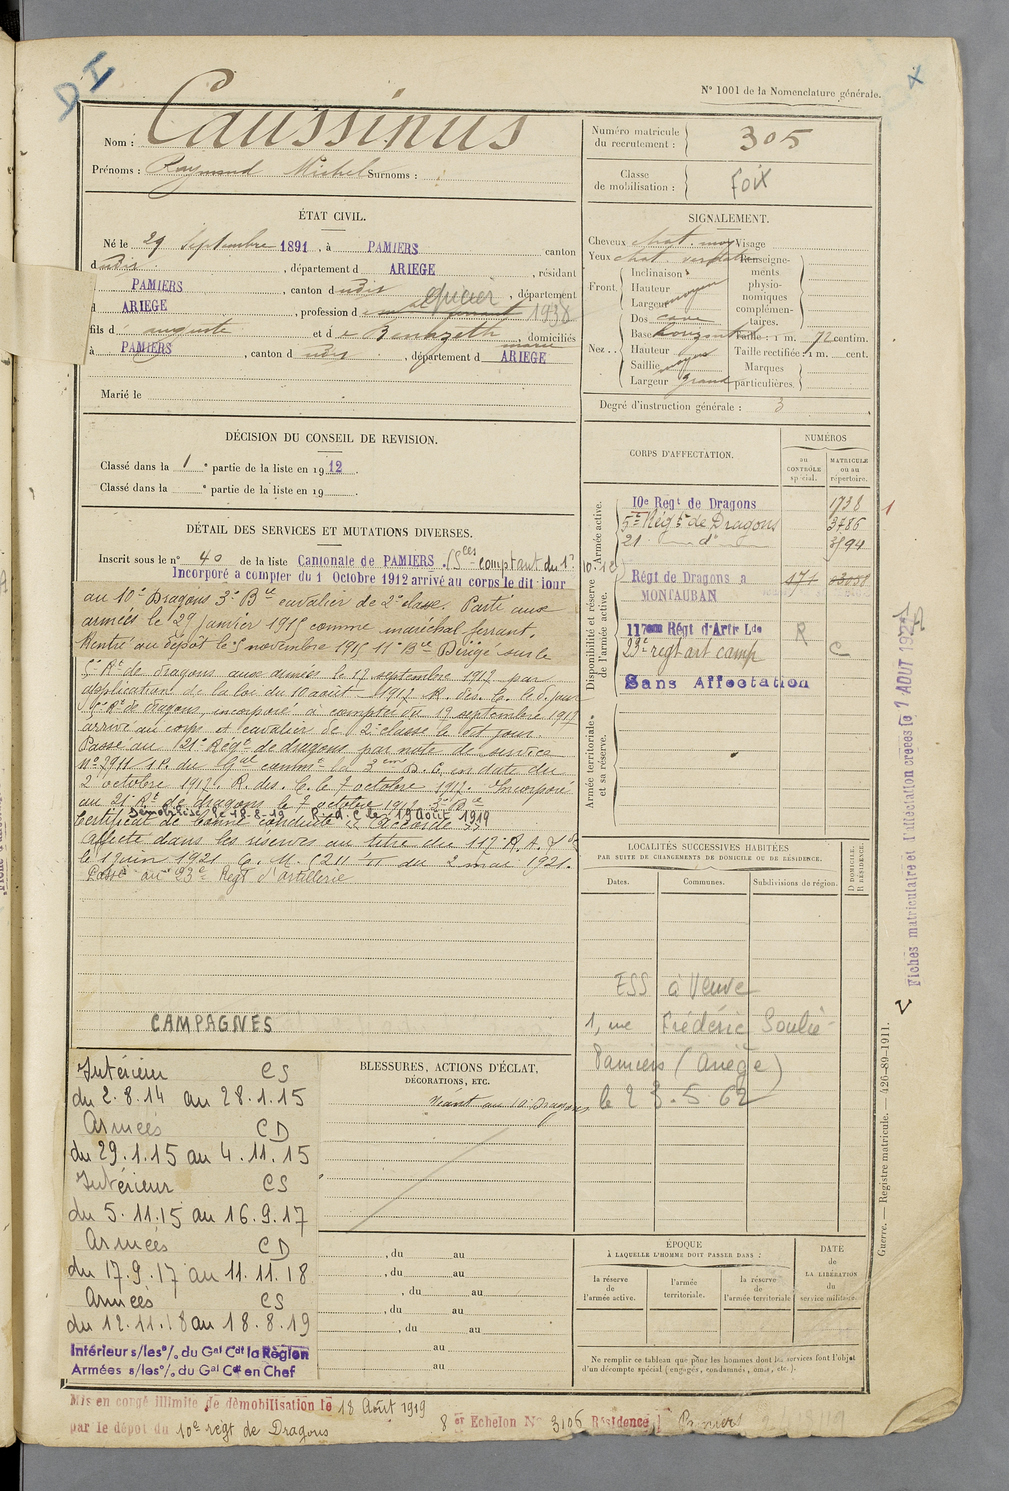 DI
N° 1001 de la Nomenclature générale.
Nom : Caussinus
Prénoms : Raymond Michel Surnoms :
Numéro matricule du recrutement : 305
Classe de mobilisation : Foix
ÉTAT CIVIL.
Né le 29 Septembre 1891, à PAMIERS canton
dudit, département d ARIEGE, résidant
PAMIERS, canton dudit, département
d ARIEGE, profession d épicier 1938
fils d auguste et de domiciliés
à PAMIERS, canton dudit, département d ARIEGE
Marié le
SIGNALEMENT.
Cheveux chat. moy Visage
Yeux chat. Renseignements physionomiques complémentaires.
Front. Inclinaison
Hauteur
Largeur moyen
Nez.. Dos cave
Base horizontale Taille : 1 m. 72 centim.
Hauteur Taille rectifiée : 1 m. cent.
Saillie moyen Marques particulières.
Largeur grand
Degré d'instruction générale : 3
DÉCISION DU CONSEIL DE REVISION.
Classé dans la 1e partie de la liste en 1912.
Classé dans la e partie de la liste en 19
DÉTAIL DES SERVICES ET MUTATIONS DIVERSES.
Inscrit sous le n° 40 de la liste Cantonale de PAMIERS. (Sces comptant du 1er 10-12)
Incorporé à compter du 1 Octobre 1912 arrivé au corps le dit jour
au 10e Dragons 3e Bie cavalier de 2e classe. Parti aux
armées le 29 Janvier 1915 comme maréchal ferrant.
Rentré au dépôt le 5 novembre 1915 11e Bie Dirigé sur le
5e Rt de dragons aux armées le 17 septembre 1917 par
application de la loi du 10 août 1917. R. des. C. le d. jour
5e Rt de dragons, incorporé à compter du 19 septembre 1917
arrivé au corps et cavalier de 2e classe le dit jour.
Passé au 21e Régt de dragons par note de service
N° 7911 1.P. du Gal commt la 3eme D. C. en date du
2 octobre 1917. R. des. C. le 7 octobre 1917. Incorporé
au 21e Rt de dragons le 7 octobre 1917
Démobilisé le 18-8-19 R.d.C le 19 Août 1919
Certificat de bonne conduite "Accordé"
Affecté dans les réserves au titre du 117e R. A. Lde
le 1 juin 1921 C. M. du 2 mai 1921.
Passé au 23e Régt d'artillerie
CORPS D'AFFECTATION.
NUMÉROS
au CONTRÔLE spécial.
MATRICULE ou au répertoire.
Armée active.
10e Regt de Dragons 1738
5e Régt de Dragons 3786
21 d° 3594
Disponibilité et réserve de l'armée active.
Régt de Dragons a MONTAUBAN
117eme Régt d'Artie Lde R
23e regt art camp C
Sans Affectation
Armée territoriale et sa réserve.
LOCALITÉS SUCCESSIVES HABITÉES
PAR SUITE DE CHANGEMENTS DE DOMICILE OU DE RÉSIDENCE.
Dates. Communes. Subdivisions de région. D DOMICILE. R RÉSIDENCE.
ESS à Veuve
1, rue Frédéric Soulié
Pamiers (Ariège)
le 23.5.62
CAMPAGNES
Intérieur CS
du 2.8.14 au 28.1.15
Armées CD
du 29.1.15 au 4.11.15
Intérieur CS
du 5.11.15 au 16.9.17
Armées CD
du 17.9.17 au 11.11.18
Armées CS
du 12.11.18 au 18.8.19
Intérieur s/les % du Gal Cdt la Règion
Armées s/les % du Gal Cdt en Chef
BLESSURES, ACTIONS D'ÉCLAT,
DÉCORATIONS, ETC.
Néant au 10e Dragons
, du au
, du au
, du au
, du au
, du au
au
au
ÉPOQUE
À LAQUELLE L'HOMME DOIT PASSER DANS :
la réserve de l'armée active.
l'armée territoriale.
la réserve de l'armée territoriale
DATE de LA LIBÉRATION du service militaire.
Ne remplir ce tableau que pour les hommes dont les services font l'objet
d'un décompte spécial (engagés, condamnés, omis, etc.).
Mis en congé illimité de démobilisation le 18 Août 1919
par le dépôt du 10e régt de Dragons
8 er Echelon N° 3106 Résidence Pamiers
Fiches matriculaire et d'affectation créées le 7 AOUT 1922
Guerre. — Registre matricule. — 426-89-1911.